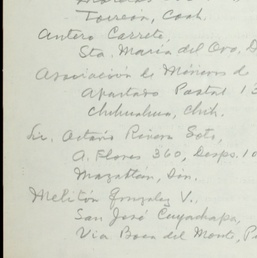 Torreón, Coah.
Antero Carrete,
Sta. Maria del Oro, D
Asociación de Mineros de
Apartado Postal 13
Chihuahua, Chih.
Sr. Octavio Rivera Soto,
A. Flores 360, Desps. 10
Mazatlán, Sin.
Melitón Gonzalez V.
San José Cuyachapa,
Via Boca del Monte, P